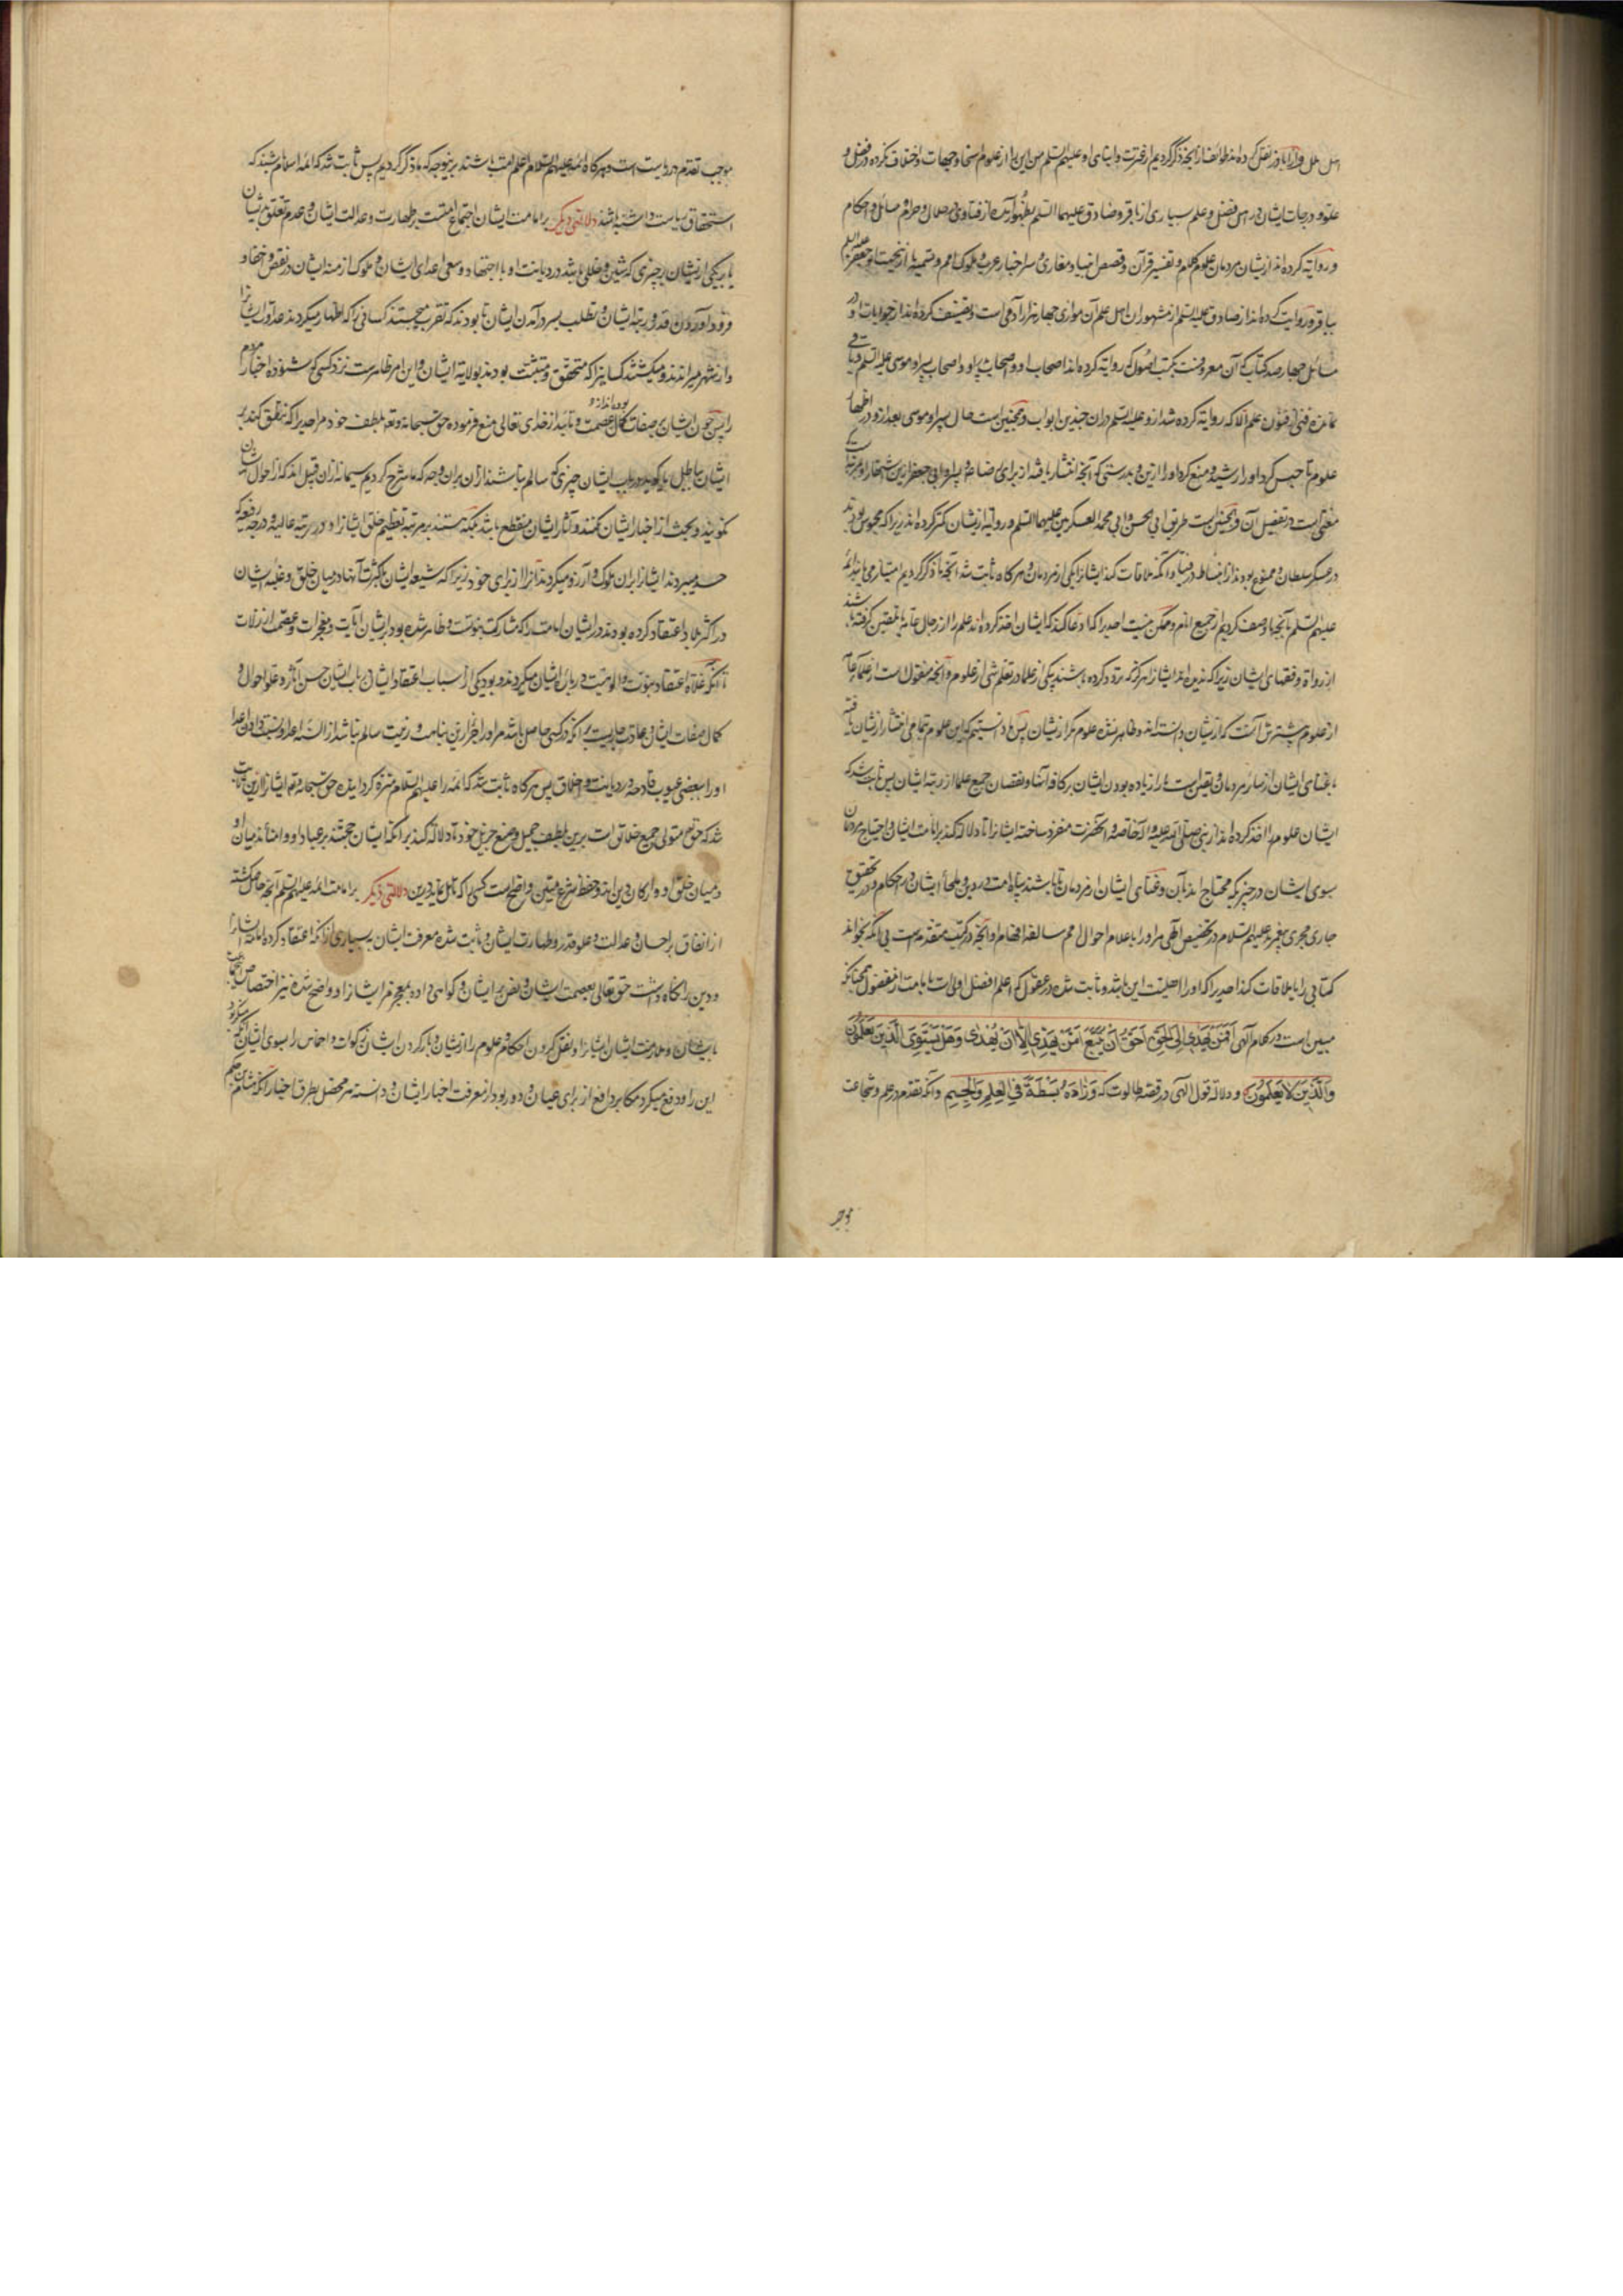 اهل ملل و آرا باور نقل کرده اند طوائف از آنچه ذکر کردیم از عترت و ابنای او علیهم السلم من این را از علوم اسخا و جهات و اختلاف کرده در فضل و
علو درجات ایشان در اهل فضل و علم بسیاری از باقر و صادق علیهما السلم بظهور آمده از فتاوی در حلال و حرام و مسائل و احکام
و روایة کرده اند از ایشان مردمان علوم کلام و تفسیر قرآن و قصص انبیا و مغازی و سیر اخبار عرب و ملوک امم و تسمیه
بباقر و روایت کرده اند از صادق علیه السلم از مشهوران اهل علم آن موازی چهار هزار آدمی است و تصنیف کرده اند از جوابات او در
مسائل چهار صد کتاب که آن معروفست بکتب اصول که روایة کرده اند اصحاب او و اصحاب پدر او و اصحاب پسر او موسی علیه السلم و باقی
نمانده فنی از فنون علم الا که روایة کرده شد از او علیه السلم در آن چندین ابواب و همچنین است حال پسر او موسی بعد از و در اظهار
علوم تا حبس کرد او را رشید و منع کرد او را ازین و بدرستی که آنچه انتشار یافته از برای رضا و پسر او ابی جعفر ازین
مغنی است در تفصیل آن و همچنین است طریق ابی الحسن و ابی محمد العسکریین علیهما السلم و روایة از ایشان کمتر کرده اند زیرا که محبوس بودند
در عسکر سلطان و ممنوع بودند از انبساط در فتیا و آنکه ملاقات کند ایشانرا یکی از مردمان و هر گاه ثابت شد آنچه ما ذکر کردیم امتیاز می یابند ائمه
علیهم السلم بآنچه ما وصف کردیم از جمیع انام و ممکن نیست احدیرا که ادعا کند که ایشان اخذ کرده اند علم را از رجال عامه یا تلقین گرفته باشند
از رواة و فقهای ایشان زیرا که ندیده اند ایشانرا هرگز که تردد کرده باشند بیکی از علما در تعلم شی از علوم و آنچه منقول است از علمای عامه
از علوم بیشترش آنست که از ایشان دانسته اند و ظاهر نشده علوم مگر از ایشان پس ما دانستیم که این علوم تمامی انتشار از ایشان یافته
با غنای ایشان از سایر مردمان و یقین است ما را زیاده بودن ایشان بر کافه آنها و نقصان جمیع علما از رتبه ایشان پس ثابت شد که
ایشان علوم را اخذ کرده اند از نبی صلی الله علیه و اله خاصه و آنحضرت منفرد ساخته ایشانرا تا دلالة کند بر امامت ایشان و احتیاج مردمان
بسوی ایشان در چیزیکه محتاج اند بآن و غنای ایشان از مردمان تا باشند پناه امت در دین و ملجأ ایشان در احکام و در تحقیق
جاری مجری پیغمبر علیهم السلام در تخصیص الهی مر او را باعلام احوال امم سالفه و افهام او آنچه در کتب متقدمه است بی آنکه بخواند
کتابی را یا ملاقات کند احدیرا که او را اهلیت این باشد و ثابت شده در عقول که اعلم افضل اولی است بامامت از مفضول همچنانکه
مبین است در کلام آلهی اَفَمَنْ یَهْدِی اِلَی الْحَقِّ اَحَقُّ اَنْ یُتَّبَعَ اَمَّنْ لا یَهِدِّی اِلّا اَنْ یُهْدی وَ هَلْ یَسْتَوِی الَّذینَ یَعْلَمُونَ
وَالَّذینَ لا یَعْلَمُونَ و دلالة قول الهی در قصه طالوت که وَزادَهُ بَسْطَةً فِی الْعِلْمِ وَالْجِسْمِ و آنکه تقدم در علم و شجاعت
موجب
موجب تقدم در ریاست است و هر گاه ائمه علیهم السلام اعلم امت باشند برینوجه که ما ذکر کردیم پس ثابت شد که ائمه اسلام باشند که
استحقاق ریاست داشته باشند دلالتی دیگر بر امامت ایشان اجتماع امتست بر طهارت و عدالت ایشان و عدم تعلق بر ایشان
یا بیکی از ایشان بچیزی که شین و خللی باشد در دیانت او با اجتهاد و سعی اعدای ایشان و ملوک ازمنه ایشان در نقض و خفا و
فرود آوردن قدر و رتبه ایشان و تطلب بسر درآمدن ایشان تا بودند که تقرب میجستند کسانی را که اظهار میکردند عداوت ایشانرا
و از شهر میراندند و میکشتند کسانیرا که متحقق و متثبت بودند بولایة ایشان و این امر ظاهرست نزد کسی که شنوده اخبار مردم
را پس چون ایشان بر صفات کمال بوده اند از و عصمت و تأیید از خدای تعالی منع فرموده حق سبحانه و تعالی بلطف خود مر احدیرا که نطق کند بر
ایشان بباطل یا گوید در باب ایشان چیزی که سالم نباشند از آن بران وجه که ما شرح کردیم سیما نه از آن قبیل اند که از احوال ایشان
نمویند و بحث از اخبار ایشان نکنند و آثار ایشان منقطع باشد بلکه هستند بر مرتبه تعظیم خلق ایشانرا و در رتبه عالیه و درجه رفیعه که
حسد میبردند ایشانرا بران ملوک و آرزو میکردند آنرا از برای خود زیرا که شیعه ایشان با کثرت آنها در میان خلق و غلبه ایشان
در اکثر بلاد اعتقاد کرده بودند در ایشان امامت را که مشارکت بنبوت و ظاهر شده بود بر ایشان آیات و معجزات و عصمت از زلات
تا آنکه غلاة اعتقاد نبوت و الوهیت در باره ایشان میکردند و بود یکی از اسباب اعتقاد ایشان در باب ایشان حسن آثار و علو احوال و
کمال صفات ایشان و عادت جاریست بر آنکه هر کسی حاصل باشد مر او را جزای ازین نباهت و رتبت سالم نباشد از السنه اعدا و نسبت دادن اعدا
او را ببعضی عیوب قادحه در دیانت و اخلاق پس هر گاه ثابت شد که ائمه را علیهم السلام منزه گردانیده حق سبحانه و تعالی ایشانرا ازین ثابت
شد که حق تعالی متولی جمیع خلائق است برین بلطف جمیل و صنع جزیل خود تا دلالة کند بر آنکه ایشان حجتند بر عباد او و امنااند میان او
و میان خلق او و ارکان دین اند و حفظه شرع مبین و واضح است کسیرا که تامل نماید درین دلالتی دیگر بر امامت ائمه علیهم السلم آنچه حاصل گشته
از اتفاق بر احسان و عدالت و علو قدر و طهارت ایشان و ثابت شده معرفت ایشان بسیاری از آنکه اعتقاد کرده امامت ایشانرا
و دین را نگاه داشت حق تعالی بعصمت ایشان و نص بر ایشان و گواهی داده بمعجز مر ایشانرا و واضح شده نیز اختصاص این جماعت
بایشان و ملازمت ایشان ایشانرا و نقل کردن احکام و علوم را از ایشان و بار کردن ایشان زکوات و اخماس را بسوی ایشان آنکه
این را و دفع میکرد مکابر دافع از برای عیان و دور بود از معرفت اخبار ایشان و دانسته هر محصل بطرق اخبار آنکه هشام بن حکم